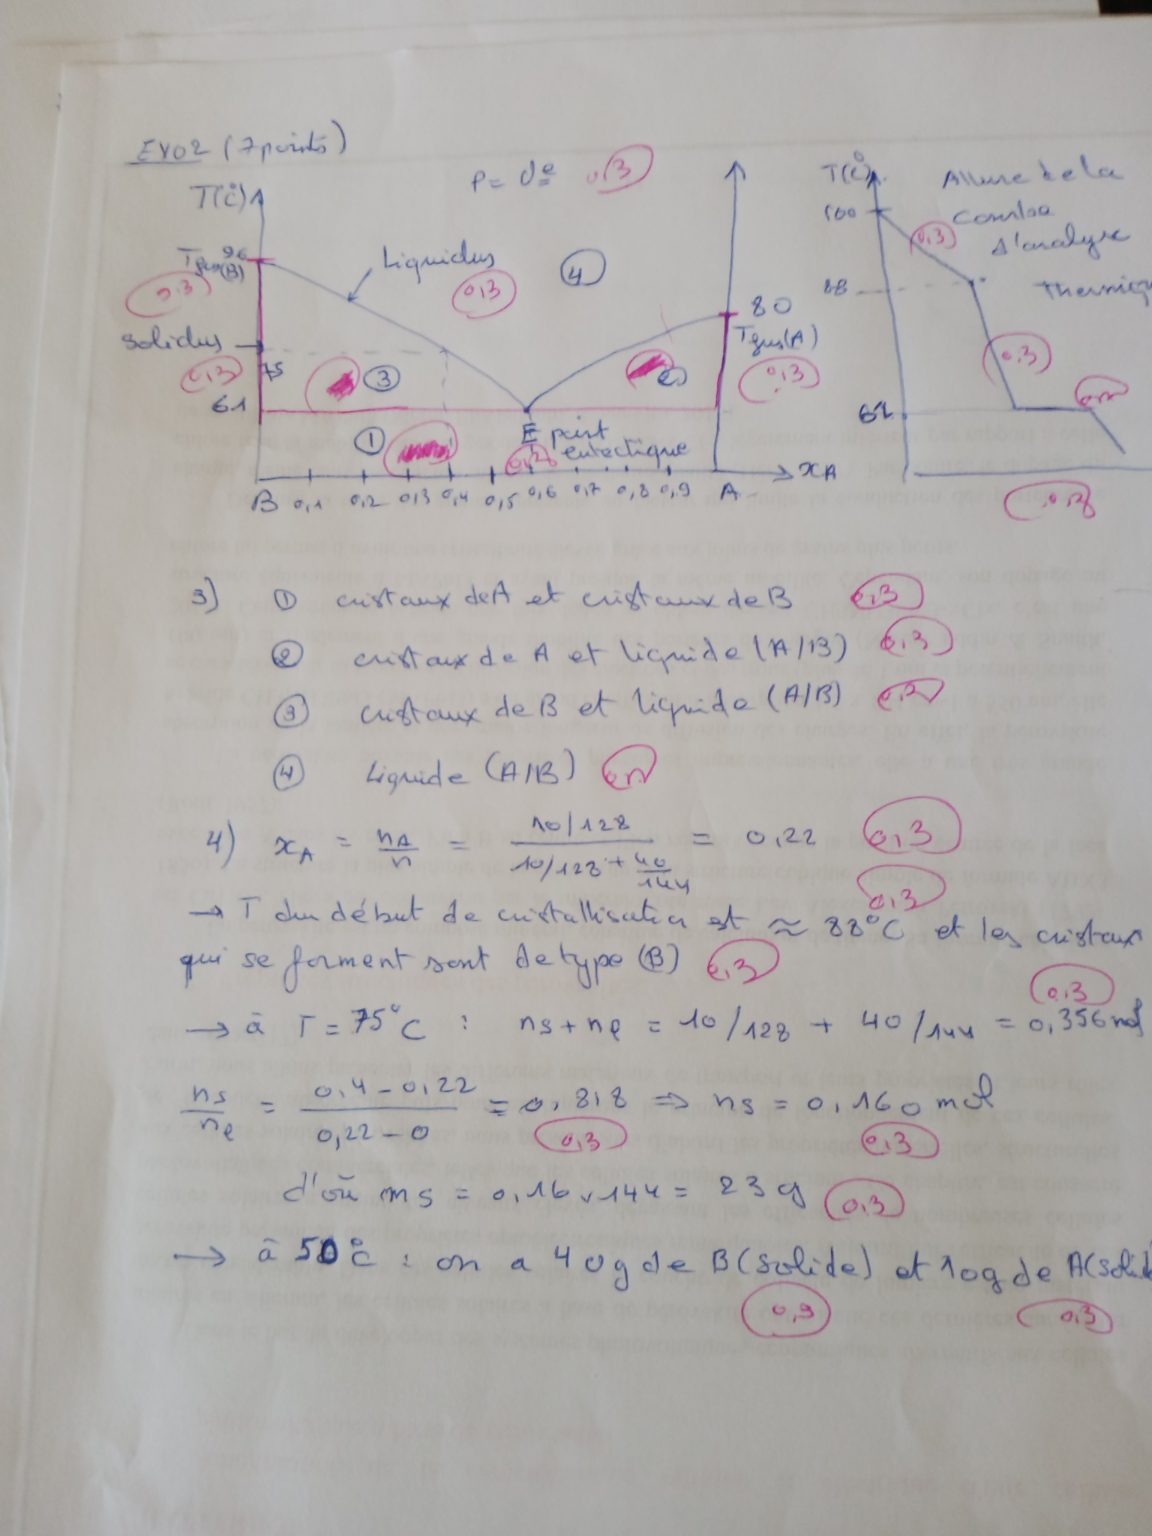 EXO2 (7points)
T(°C)
P = Cte 0,3
T(°C)
Allure de la
courbe
d'analyse
100
0,3
96
Tfus(B)
0,3
Liquidus
0,3
4
88
0,3
80
Tfus(A)
0,3
Solidus
0,3
75
3
2
61
61
1
E point
eutectique
0,3
xA
B 0,1 0,2 0,3 0,4 0,5 0,6 0,7 0,8 0,9 A
3) 1 cristaux de A et cristaux de B 0,3
2 cristaux de A et liquide (A/B) 0,3
3 cristaux de B et liquide (A/B)
4 Liquide (A/B)
4) xA = nA/n = 10/128 / 10/128 + 40/144 = 0,22 0,3
0,3
→ T du début de cristallisation est ≈ 88°C et les cristaux
qui se forment sont de type (B) 0,3
0,3
→ à T = 75°C : ns + nl = 10/128 + 40/144 = 0,356 mol
ns/nl = 0,4 - 0,22 / 0,22 - 0 = 0,818 ⇒ ns = 0,160 mol
0,3 0,3
d'où ms = 0,16 x 144 = 23 g 0,3
→ à 50°C : on a 40g de B (solide) et 10g de A
0,3 0,3